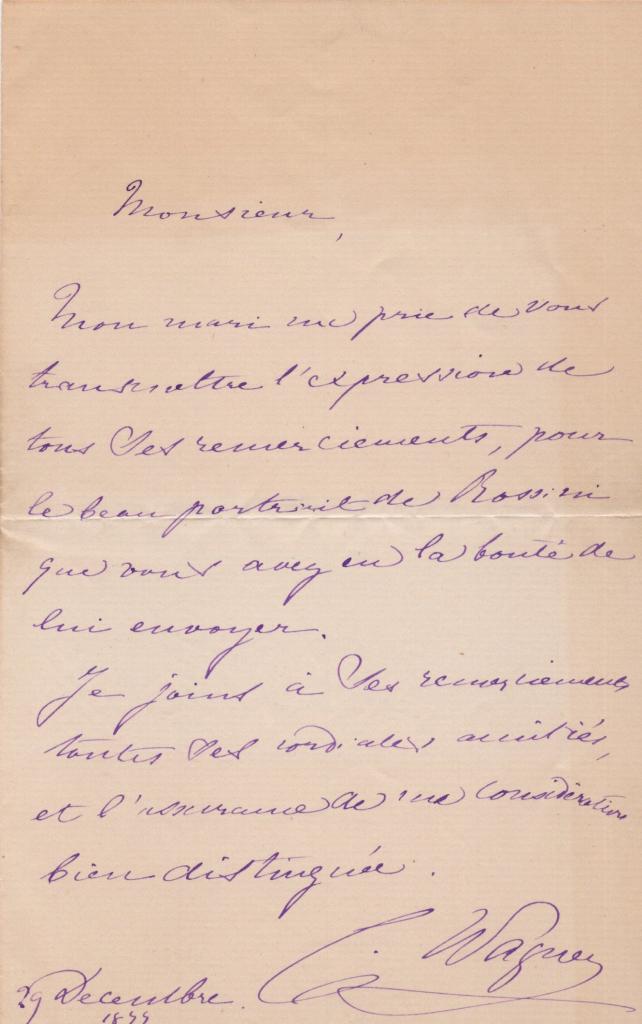 Monsieur,
Mon mari me prie de vous
transmettre l'expression de
tous Ses remerciements, pour
le beau portrait de Rossini
que vous avez eu la bonté de
lui envoyer.
Je joins à Ses remerciements
toutes Ses cordiales amitiés,
et l'assurance de ma considération
bien distinguée.
C. Wagner
29 Décembre
1877